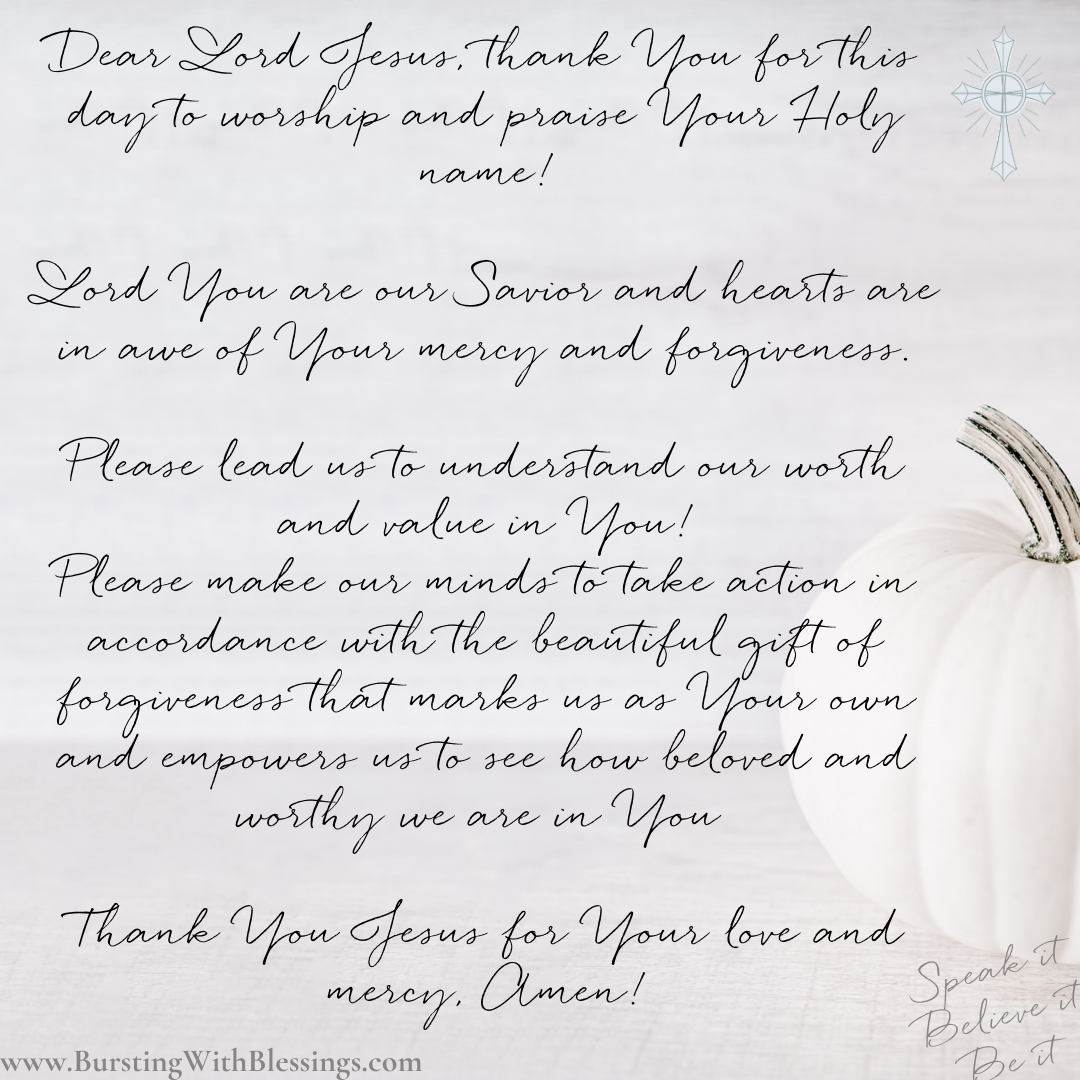 Dear Lord Jesus, thank You for this
day to worship and praise Your Holy
name!
Lord You are our Savior and hearts are
in awe of Your mercy and forgiveness.
Please lead us to understand our worth
and value in You!
Please make our minds to take action in
accordance with the beautiful gift of
forgiveness that marks us as Your own
and empowers us to see how beloved and
worthy we are in You
Thank You Jesus for Your love and
mercy, Amen!
Speak it
Believe it
Be it
www.BurstingWithBlessings.com